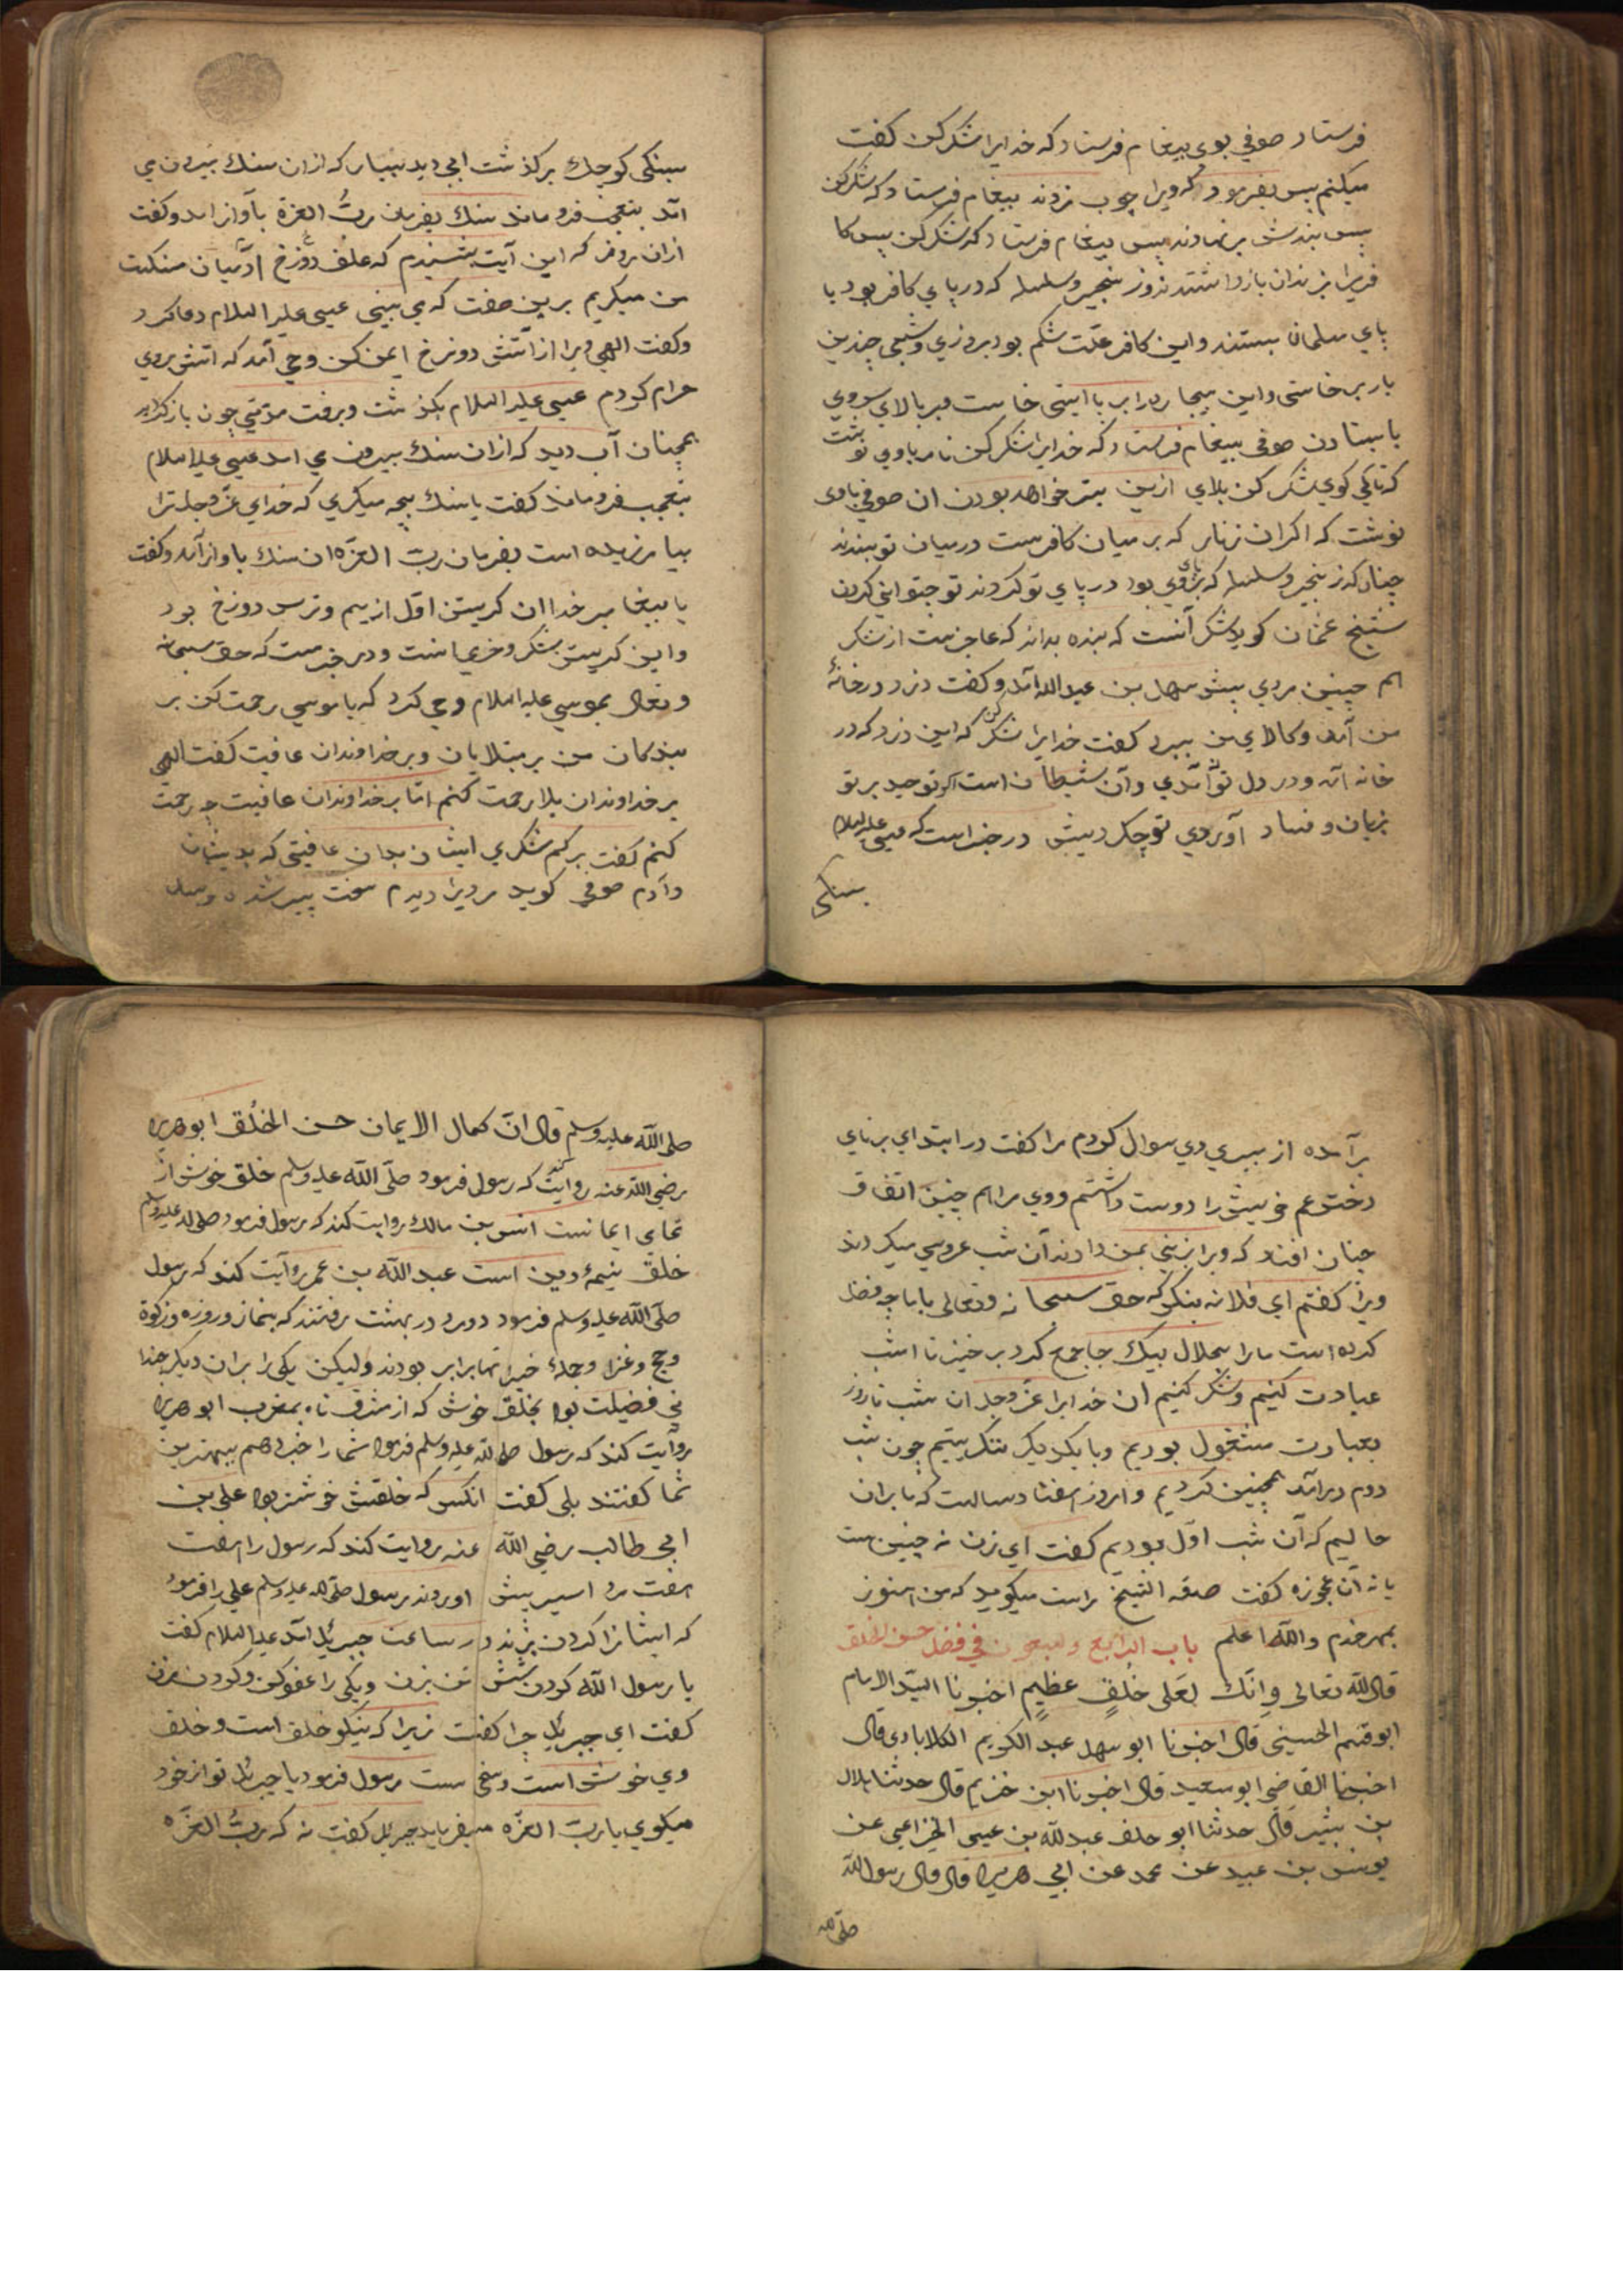 فرستاد صوفي بوي بيغام فرستاد كه خدايرا شكر كن كفت
ميكنم پس بفرمود كه ويرا چوب زدند بيغام فرستاد كه شكر كن
پس بندش بر نهادند پس بيغام فرستاد كه شكر كن پس كا
فريرا بزندان بازداشتند زنجير وسلسله كه در پاي كافر بود با
پاي مسلمان ببستند واين كافر علّت شكم بود بروزي وشبي چندين
بار بر خاستي واين بيچاره را بر بايستي خاست وبر بالاي سر وي
بايستادن صوفي بيغام فرستاد كه خدايرا شكر كن نامه باوي نوشت
كه تاكي كوي شكر كن بلاي ازين بيتر خواهد بودن ان صوفي باوي
نوشت كه اكر ان زنار كه بر ميان كافرست در ميان تو ببندند
چنانكه زنجير وسلسله كه بر پاي وي بود در پاي تو كردند تو چتواني كردن
شيخ عثمان كويد شكر آنست كه بنده بداند كه عاجزست از شكر
هم چنين مردي پيش سهل بن عبد الله آمد وكفت دزد در خانۀ
من آمد وكالاي من ببرد كفت خدايرا شكر كن كه اين دزد كه در
خانه آمد ودر دل تو آمدي وآن شيطان است اكر توحيد بر تو
بزيان وفساد آوردي تو چكردييتي در خبر است كه عيسي عليه السلام
بسنكي
بسنكي كوچك بر كذشت ابي ديد بسيار كه ازان سنك بيرون مي
آمد بتعجب فرو ماند سنك بفرمان ربُّ العزة بآواز امد وكفت
ازان روز كه اين آيت بشنيدم كه علف دوزخ آدميان وسنكست
من ميكريم برين صفت كه مي بيني عيسي عليه السلام دعا كرد
وكفت الهي ويرا از آتش دوزخ ايمن كن وحي آمد كه آتش بروي
حرام كردم عيسي عليه السلام بكذشت وبرفت مدّتي چون باز كرديد
همچنان آب ديد كه ازان سنك بيرون مي امد عيسي عليه السلام
بتعجب فرو ماند كفت يا سنك بچه ميكري كه خداي عزّ وجل ترا
بيامرزيده است بفرمان ربّ العزّه ان سنك باواز آمد وكفت
يا بيغامبر خدا ان كريستن اوّل از بيم وترس دوزخ بود
واين كريستن شكر وخرمي است ودر خبرست كه حق سبحانه
وتعالي بموسي عليه السلام وحي كرد كه يا موسي رحمت كن بر
بندكان من بر مبتلايان وبر خداوندان عافيت كفت الهي
بر خداوندان بلا رحمت كنم امّا بر خداوندان عافيت چه رحمت
كنم كفت بر كم شكري ايشان بدان عافيتي كه بديشان
دادم صوفي كويد مرديرا ديدم سخت پير شده وسال
برآمده از پيري وي سوال كردم مرا كفت در ابتداي برناي
دختر عم خويش را دوست داشتم ووي مرا هم چنين اتفاق
چنان افتد كه ويرا بزني بمن دادند آن شب عروسي ميكردند
ويرا كفتم اي فلانه بنكر كه حق سبحانه وتعالي با ما چه فضل
كرده است ما را بحلال بيك جا جمع كرد بر خيز تا امشب
عبادت كنيم وشكر كنيم ان خدايرا عزّ وجل ان شب تا روز
بعبادت مشغول بوديم وبا يكديكر ننكريستيم چون شب
دوم درآمد همچنين كرديم وامروز هفتاد سالست كه ما بران
حاليم كه آن شب اوّل بوديم كفت اي زن نه چنين ست
يا نه آن عجوزه كفت صدق الشيخ راست ميكويد كه من هنوز
بمهر خدم والله اعلم باب الرابع والسبعون في فضل حسن الخلق
قال الله تعالي وانّك لعَلى خُلُقٍ عظيمٍ اخبرنا السيّد الامام
ابو قتم الحسيني قال اخبرنا ابو سهل عبد الكريم الكلابادي قال
اخبرنا القاضي ابو سعيد قال اخبرنا ابن خزيم قال حدثنا بلال
بن بشير قال حدثنا ابو خلف عبد الله بن عيسي الخزاعي عن
يونس بن عبيد عن محمد عن ابي هريره قال قال رسول الله
صلّى الله
صلى الله عليه وسلم قال انّ كمال الايمان حسن الخُلُق ابو هريره
رضي الله عنه روايت كند كه رسول فرمود صلّى الله عليه وسلم خلق خوش از
تمامي ايمانست انس بن مالك روايت كند كه رسول فرمود صلى الله عليه وسلم
خلق نيمۀ دين است عبد الله بن عمر روآيت كند كه رسول
صلّى الله عليه وسلم فرمود دو مرد در بهشت رفتند كه بنماز وروزه وزكوة
وحج وغزا وجملۀ خيراتها برابر بودند وليكن يكي را بر ان ديكر چندا
ني فضيلت بود بخلق خوش كه از مشرق تا بمغرب ابو هريره
روآيت كند كه رسول صلى الله عليه وسلم فرمود شما را خبر دهم ببهترين
شما كفتند بلي كفت انكس كه خلقش خوشتر بود علي بن
ابي طالب رضي الله عنه روايت كند كه رسول را هفت
هفت مرد اسير پيش اوردند رسول صلى الله عليه وسلم علي را فرمود
كه ايشانرا كردن بزند در ساعت جبرئيل آمد عليه السلام كفت
يا رسول الله كردن شش تن بزن ويكي را عفو كن وكردن مزن
كفت اي جبريل چرا كفت زيرا كه نيكو خلق است وخلق
وي خوش است وسخي ست رسول فرمود يا جبرئل تو از خود
ميكوي يا ربّ العزّه ميفرمايد جبريل كفت نه كه ربُّ العزّه